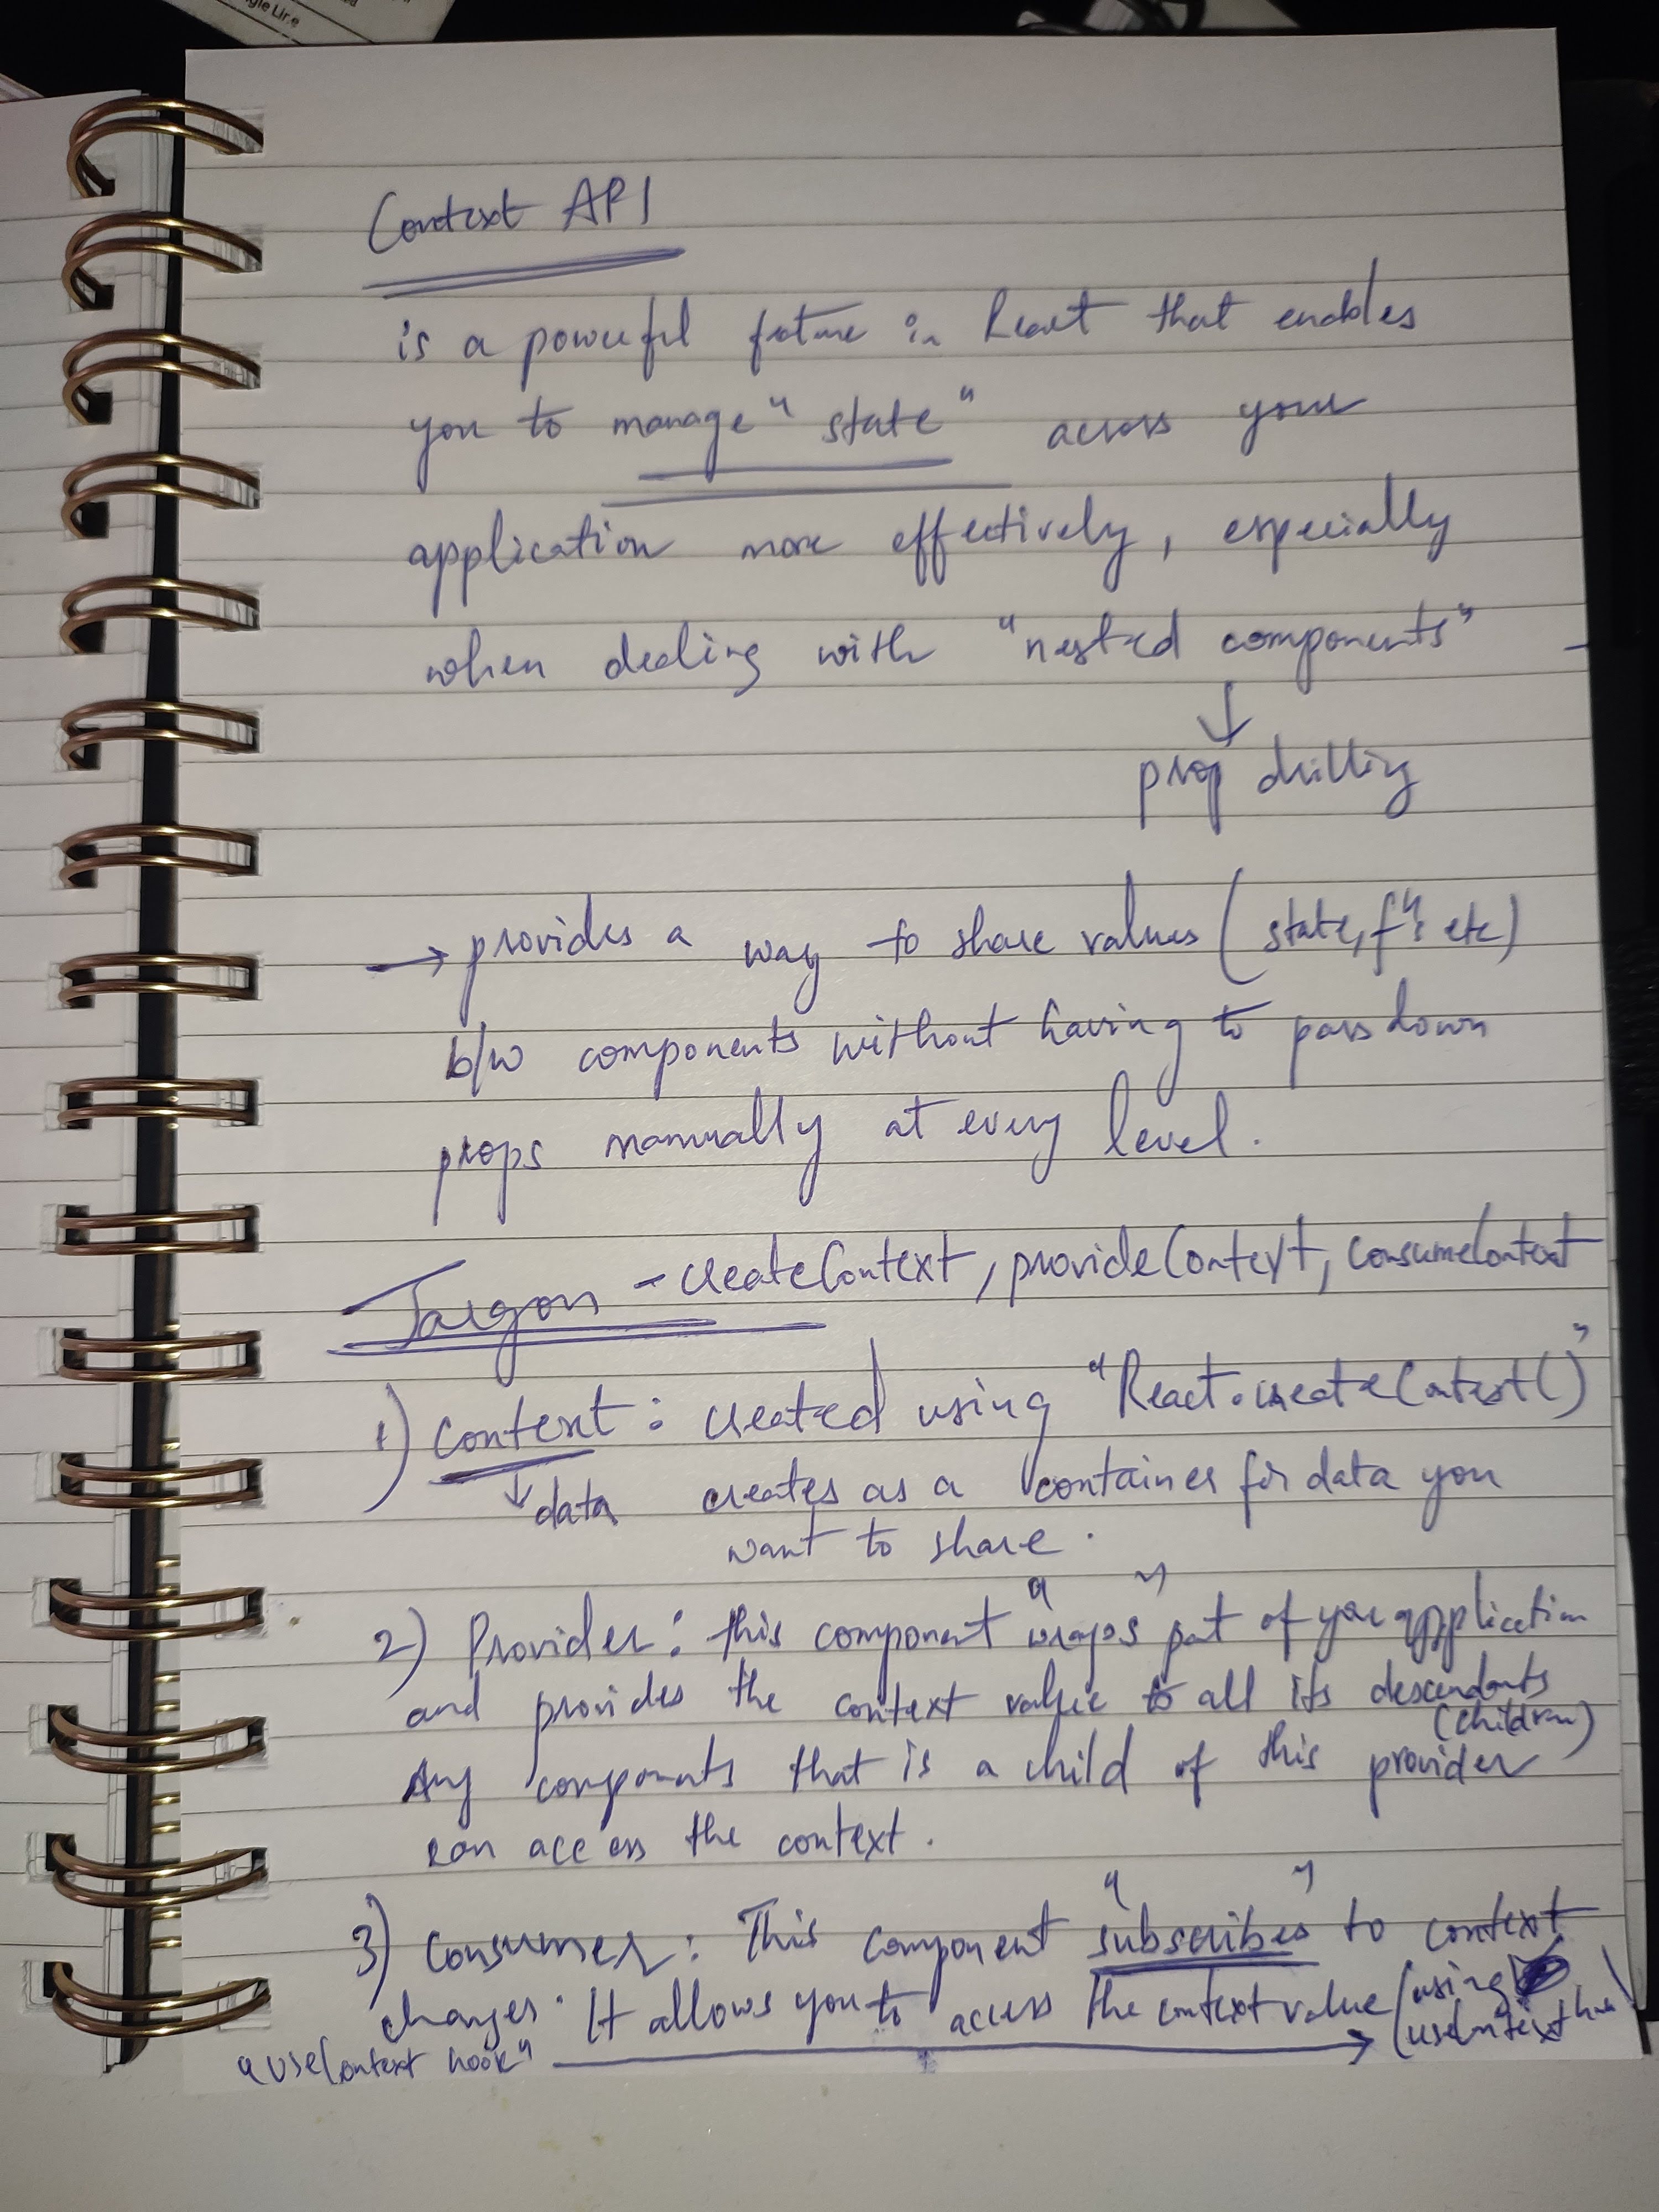 gle Line
Context API
is a powerful feature in React that enables
you to manage "state" across your
application more effectively, especially
when dealing with "nested components"
↓
prop drilling
→ provides a way to share values (state, fⁿs etc)
b/w components without having to pass down
props manually at every level.
Jargon - createContext, provideContext, consumeContext
1) Context : created using "React.createContext()"
↓ data creates as a container for data you
want to share.
2) Provider : this component "wraps" part of your application
and provides the context value to all its descendants
(children)
Any components that is a child of this provider
can access the context.
3) Consumer : This component "subscribes" to context
changes. It allows you to access the context value (using
useContext hook)
"useContext hook" →